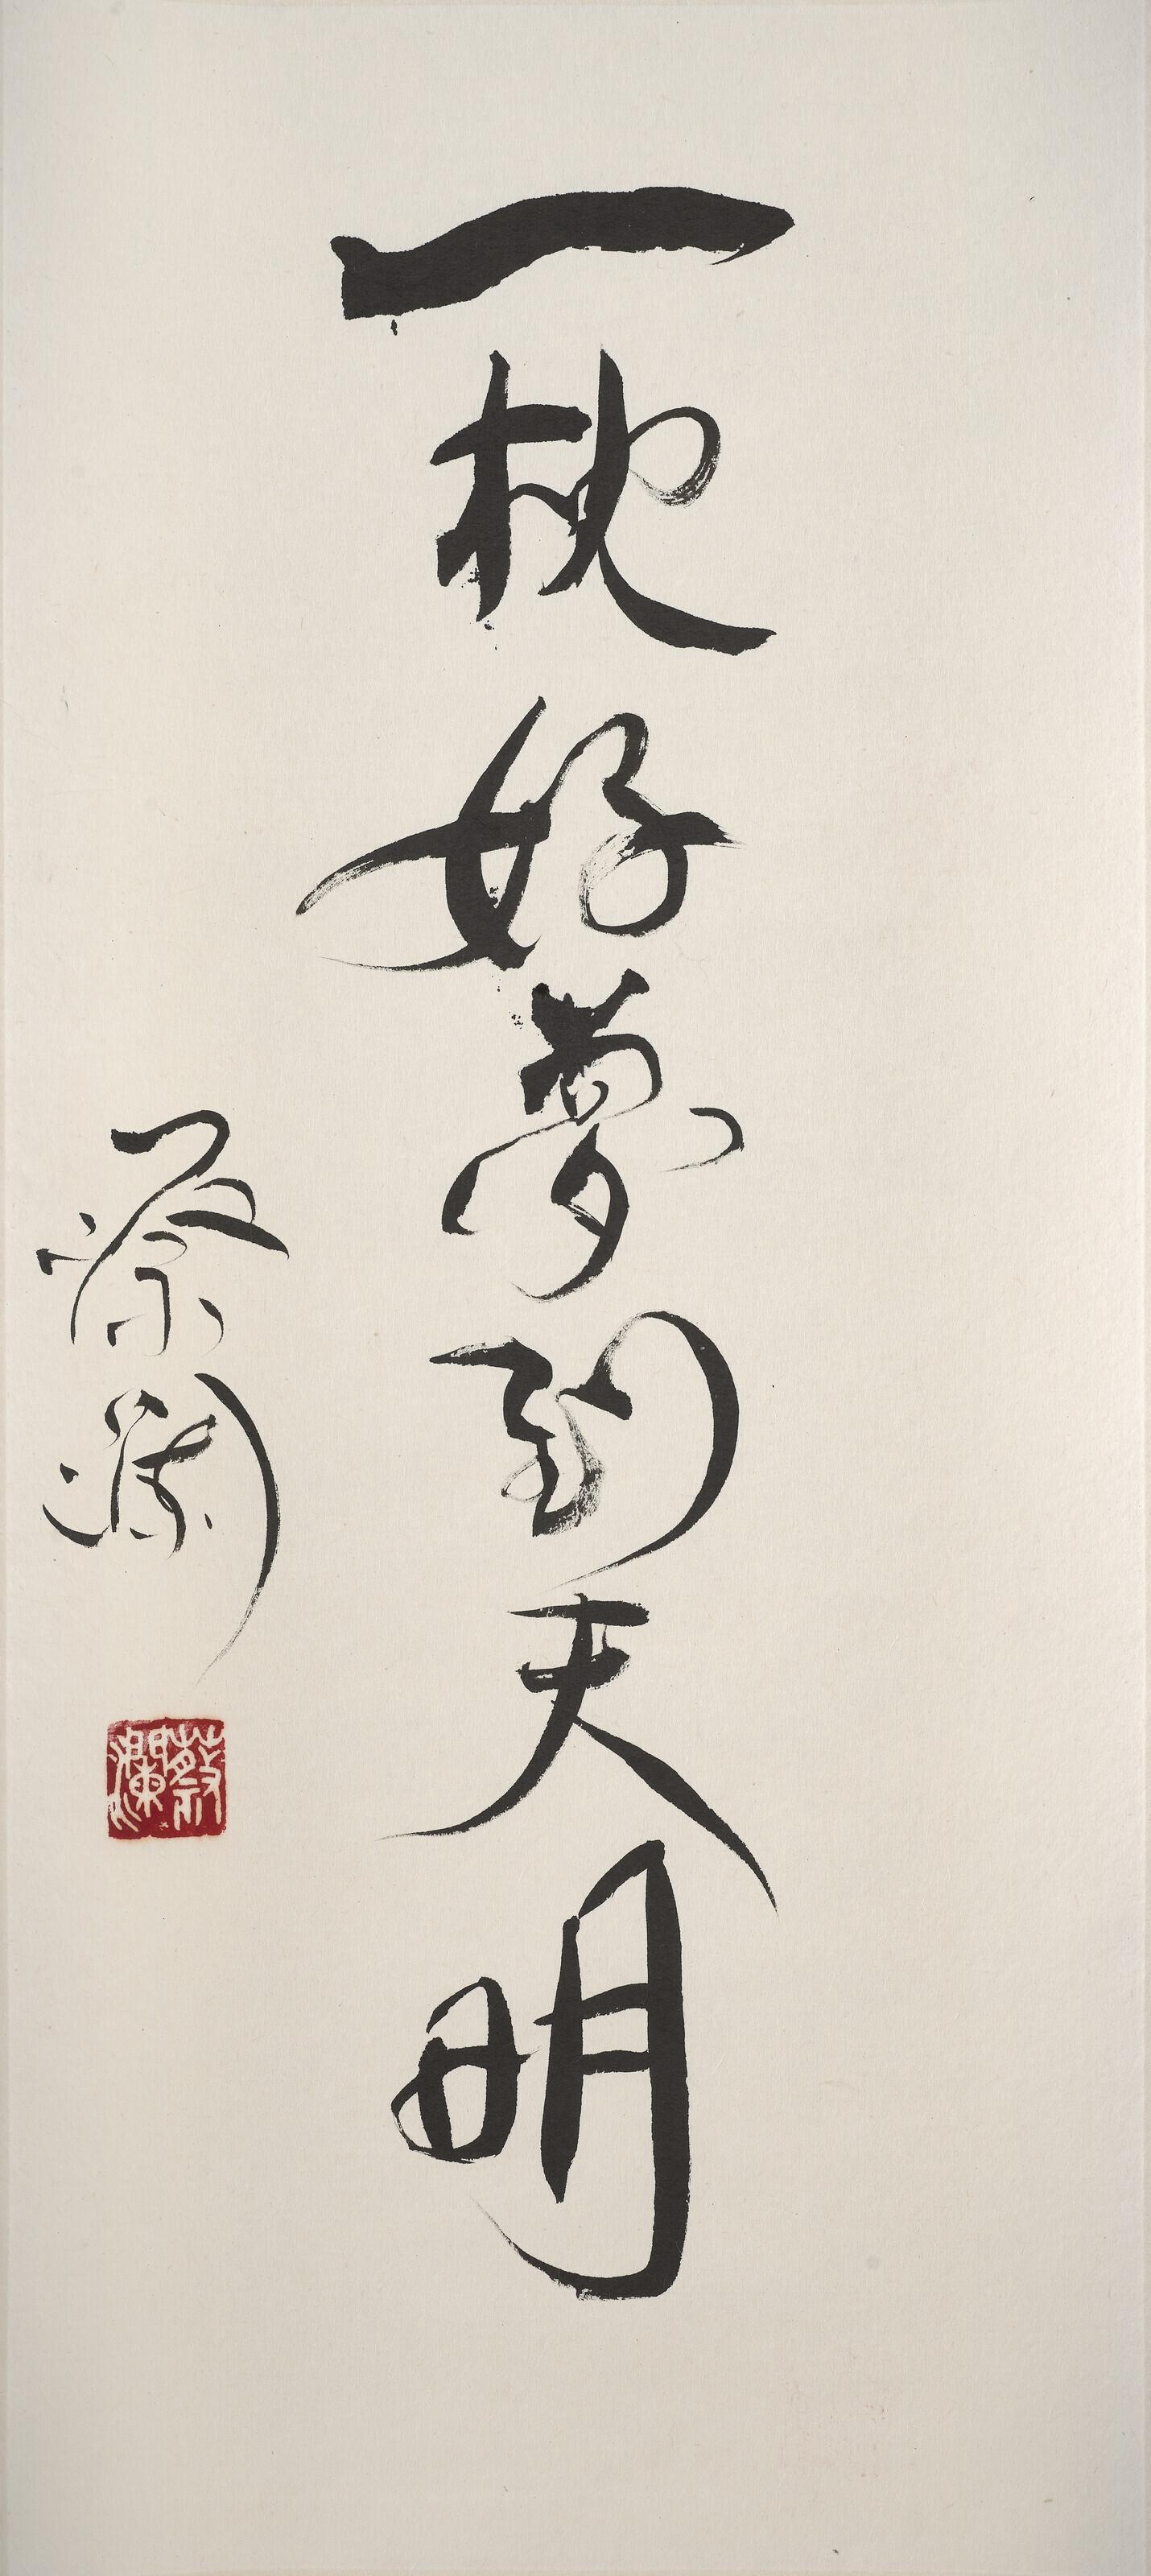 一枕好夢到天明
蔡瀾
蔡瀾